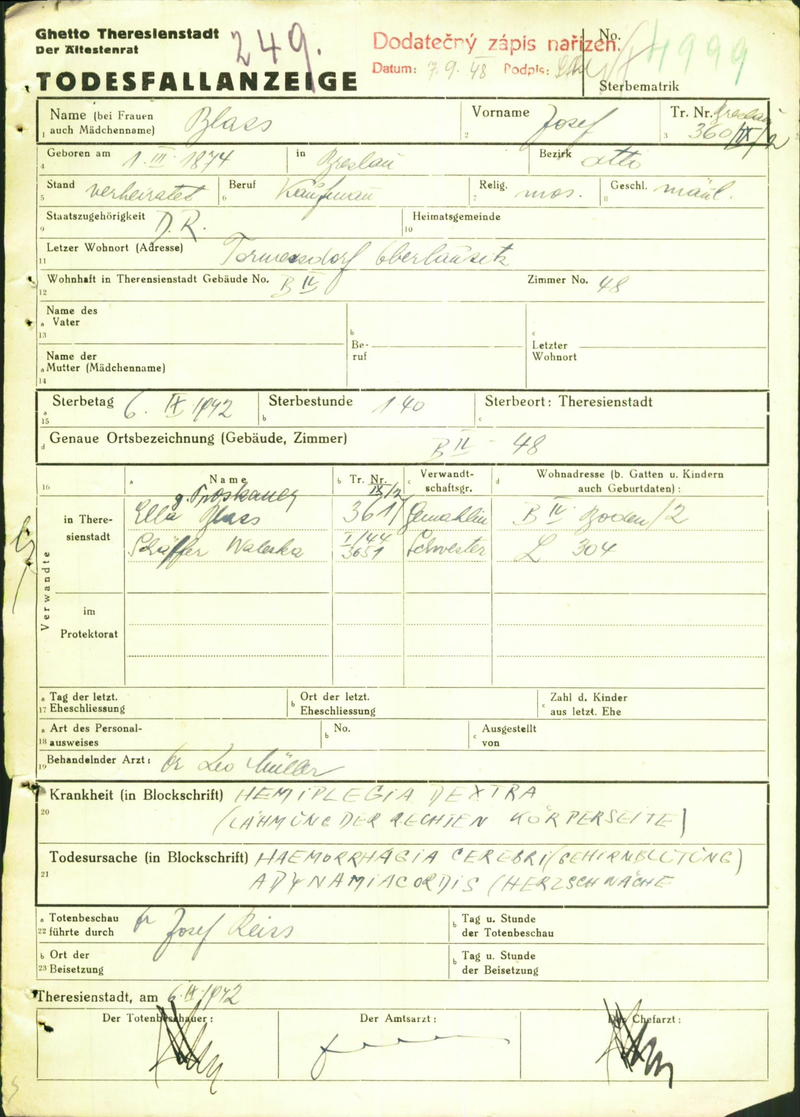 Ghetto Theresienstadt
Der Ältestenrat
249.
Dodatečný zápis nařízen.
Datum: 7.9.48 Podpis:
No. 4999
Sterbematrik
TODESFALLANZEIGE
Name (bei Frauen auch Mädchenname) Blass
Vorname Josef
Tr. Nr. Breslau 360/IX/2
1
2
3
Geboren am 1. III. 1874 in Breslau Bezirk dtto
4
Stand verheiratet Beruf Kaufmann Relig. mos. Geschl. männl.
5
6
7
8
Staatszugehörigkeit D.R. Heimatsgemeinde
9
10
Letzer Wohnort (Adresse) Tormersdorf Oberlausitz
11
Wohnhaft in Theresienstadt Gebäude No. B IV Zimmer No. 48
12
Name des
a Vater
13
b
Be-
ruf
c
Letzter
Wohnort
Name der
a Mutter (Mädchenname)
14
a Sterbetag 6. IX 1942 b Sterbestunde 140 c Sterbeort: Theresienstadt
15
d Genaue Ortsbezeichnung (Gebäude, Zimmer) B IV - 48
16
a Name b Tr. Nr. c Verwandt-
schaftsgr. d Wohnadresse (b. Gatten u. Kindern
auch Geburtdaten):
Verwandte
in There-
sienstadt
g. Proskauer IX/2
Ella Blass 361 Gemahlin B IV Boden/2
Schäffer Waleska I/44 3651 Schwester L 304
im
Protektorat
a Tag der letzt.
17 Eheschliessung
b Ort der letzt.
Eheschliessung
c Zahl d. Kinder
aus letzt. Ehe
a Art des Personal-
18 ausweises
b No.
c Ausgestellt
von
Behandelnder Arzt: Dr Leo Müller
19
Krankheit (in Blockschrift) HEMIPLEGIA DEXTRA
20 (LÄHMUNG DER RECHTEN KÖRPERSEITE)
Todesursache (in Blockschrift) HAEMORRHAGIA CEREBRI (GEHIRNBLUTUNG)
21 ADYNAMIA CORDIS (HERZSCHWÄCHE
a Totenbeschau
22 führte durch Dr Josef Reiss
b Tag u. Stunde
der Totenbeschau
b Ort der
23 Beisetzung
b Tag u. Stunde
der Beisetzung
Theresienstadt, am 6. IX. 1942
Der Totenbeschauer: Der Amtsarzt: Der Chefarzt: